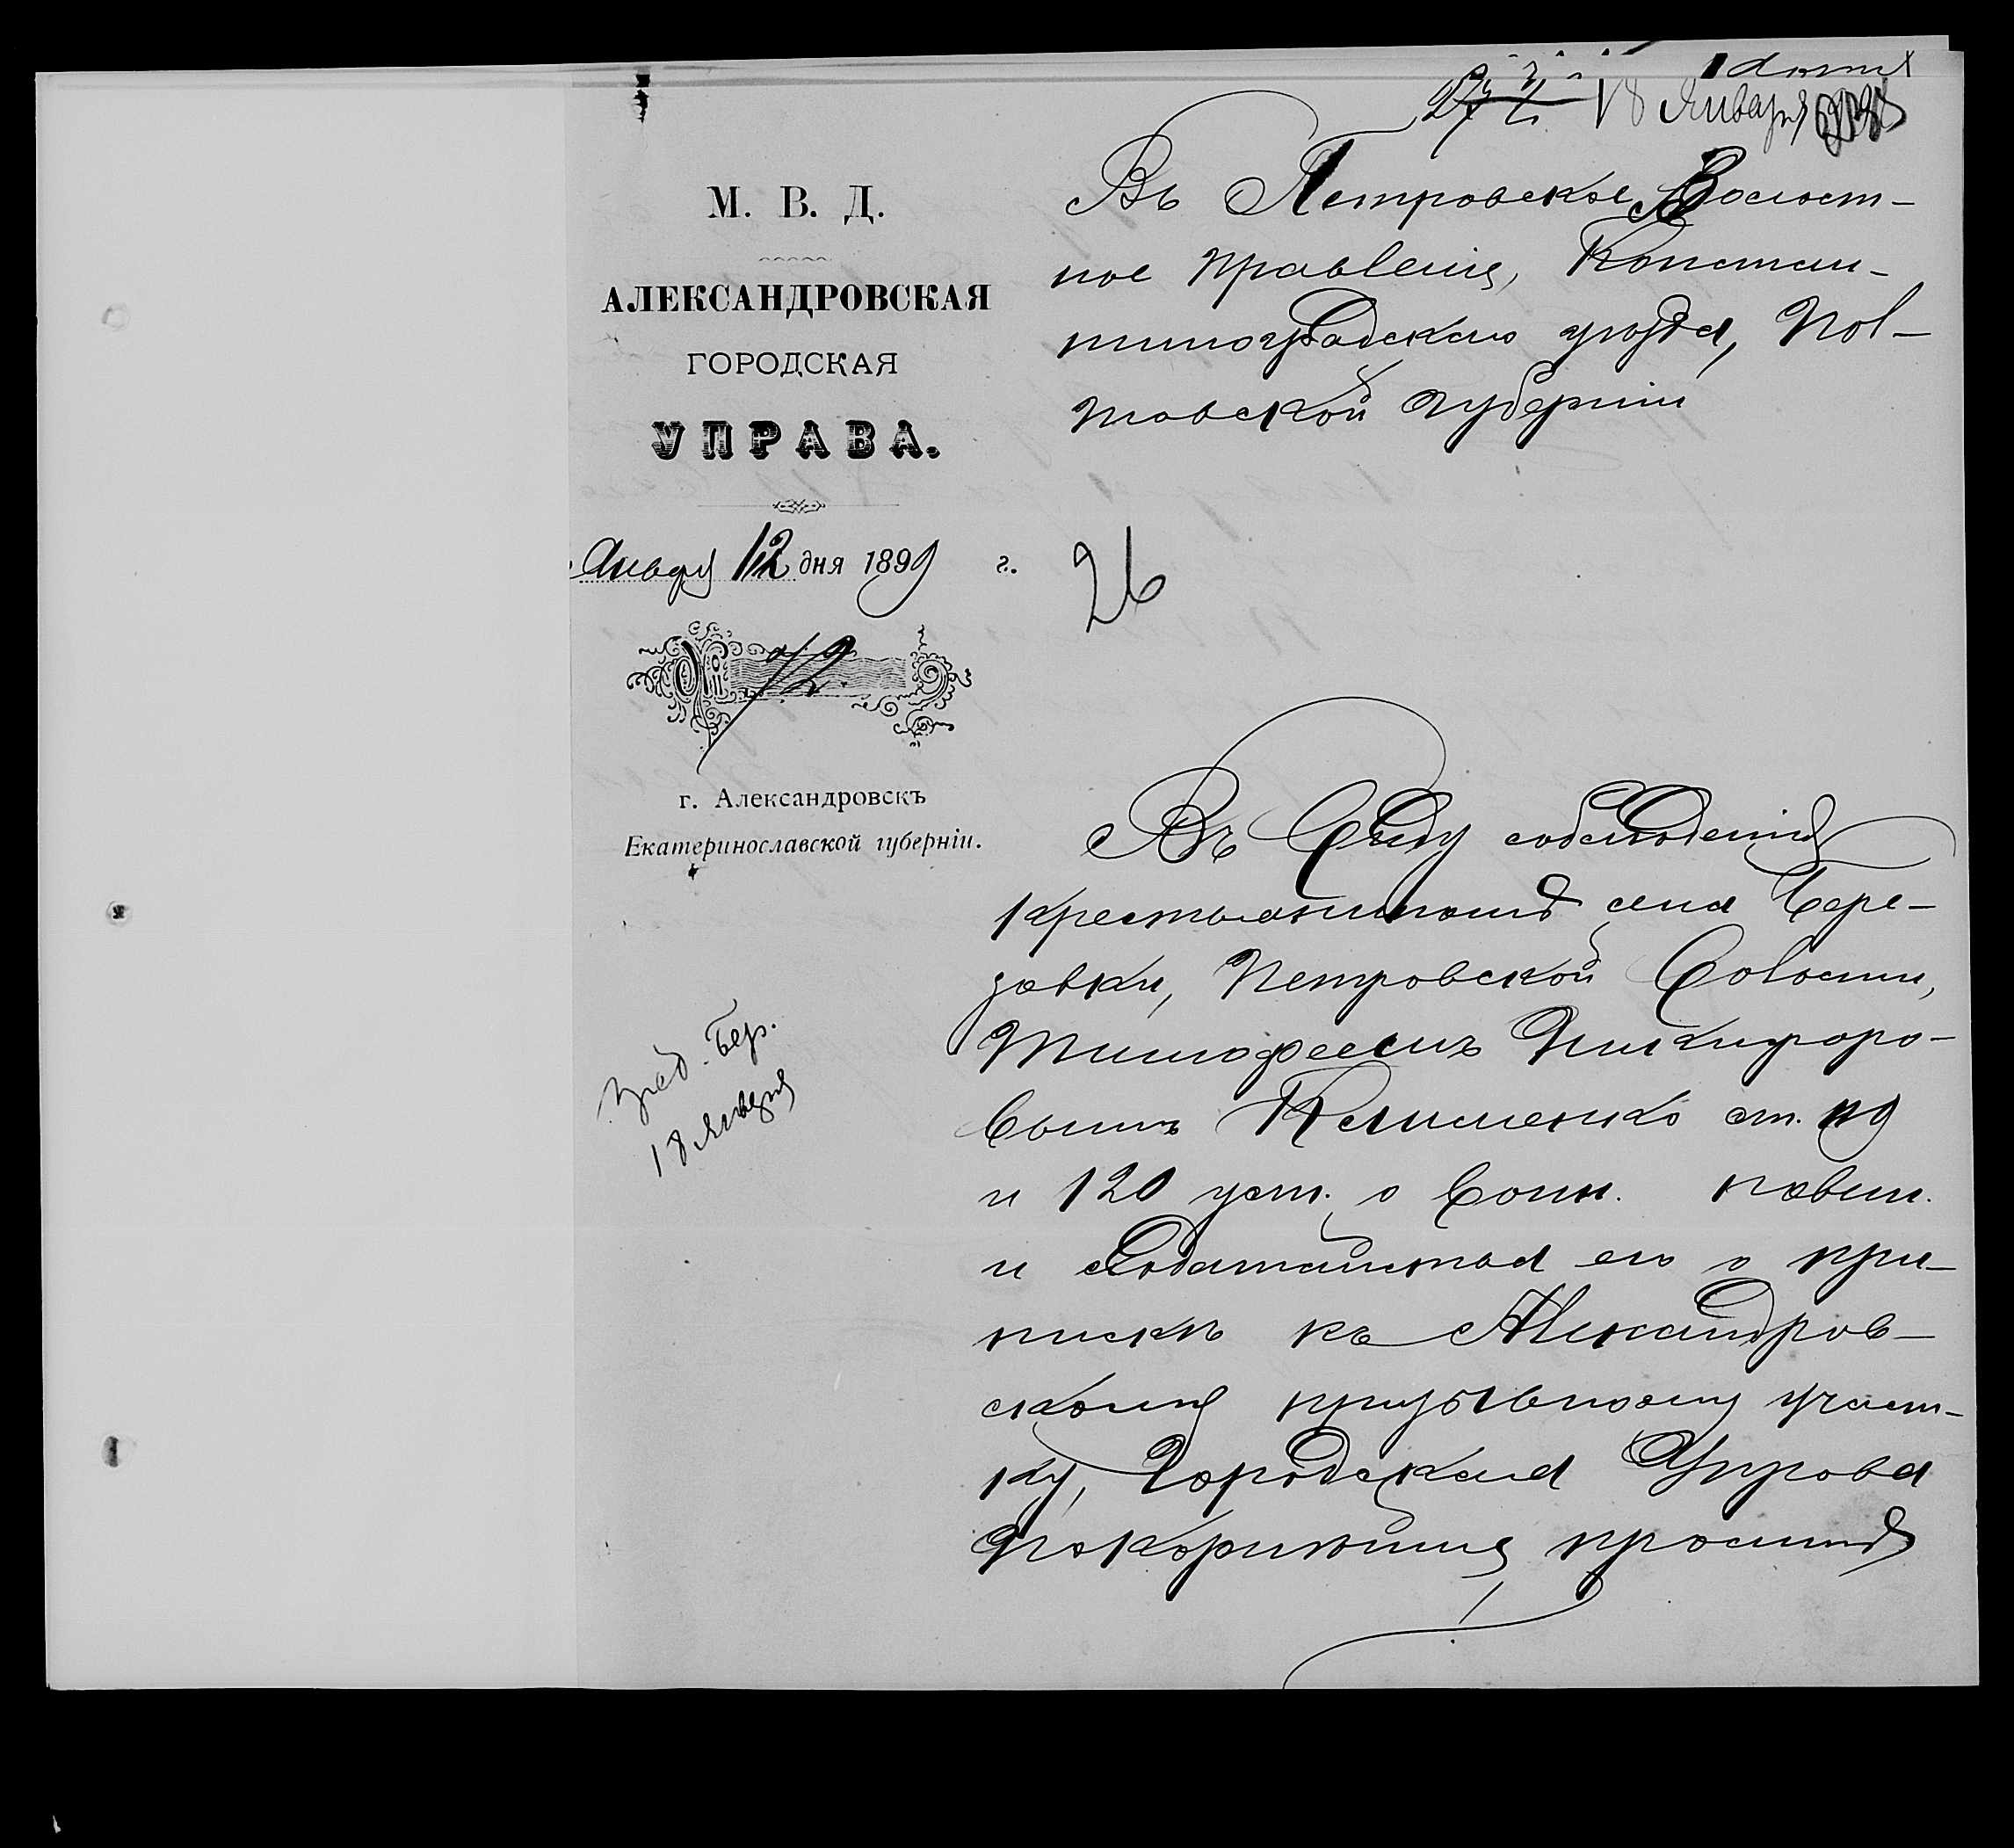 18 Января
М. В. Д.
АЛЕКСАНДРОВСКАЯ
ГОРОДСКАЯ
УПРАВА.
Января 12 дня 1899 г.
№ 72.
г. Александровскъ
Екатеринославской губерніи.
Въ Петровское Волост-
ное Правленіе, Констан-
тиноградскаго уѣзда, Пол-
тавской губерніи
26
Въ виду соблюденія
крестьяниномъ села Бере-
зовки, Петровской волости,
Тимофеемъ Никифоро-
вымъ Клименко ст. 119
и 120 уст. о воин. повин.
и ходатайства его о при-
пискѣ къ Александров-
скому призывному участ-
ку, Городская Управа
покорнѣйше проситъ
Бер.
18 Января